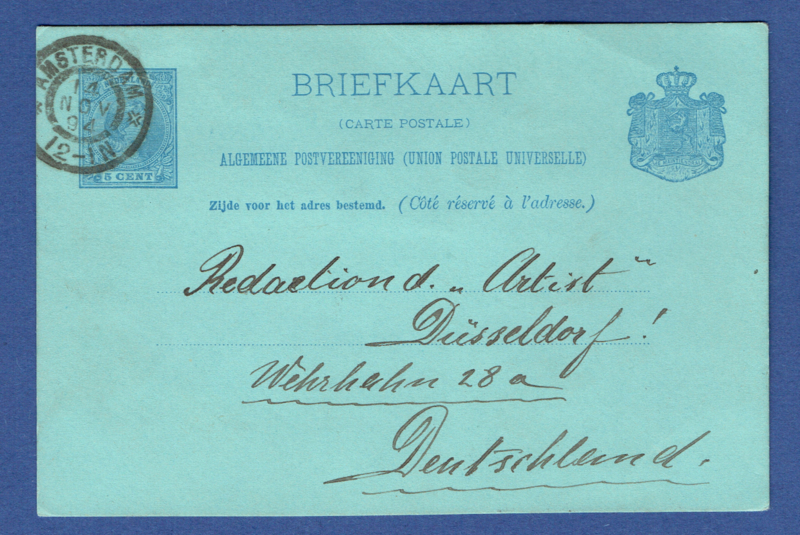 AMSTERDAM
14
NOV
94
12-1N
5 CENT
BRIEFKAART
(CARTE POSTALE)
ALGEMEENE POSTVEREENIGING (UNION POSTALE UNIVERSELLE)
Zijde voor het adres bestemd. (Côté réservé à l'adresse.)
Redaction d. „Artist“
Düsseldorf!
Wehrhahn 28a
Deutschland.